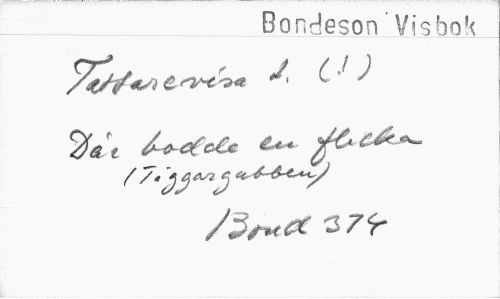 Bondeson Visbok
Tattarevisa d. (!)
Där bodde en flicka
(Tiggargubben)
Bond 374